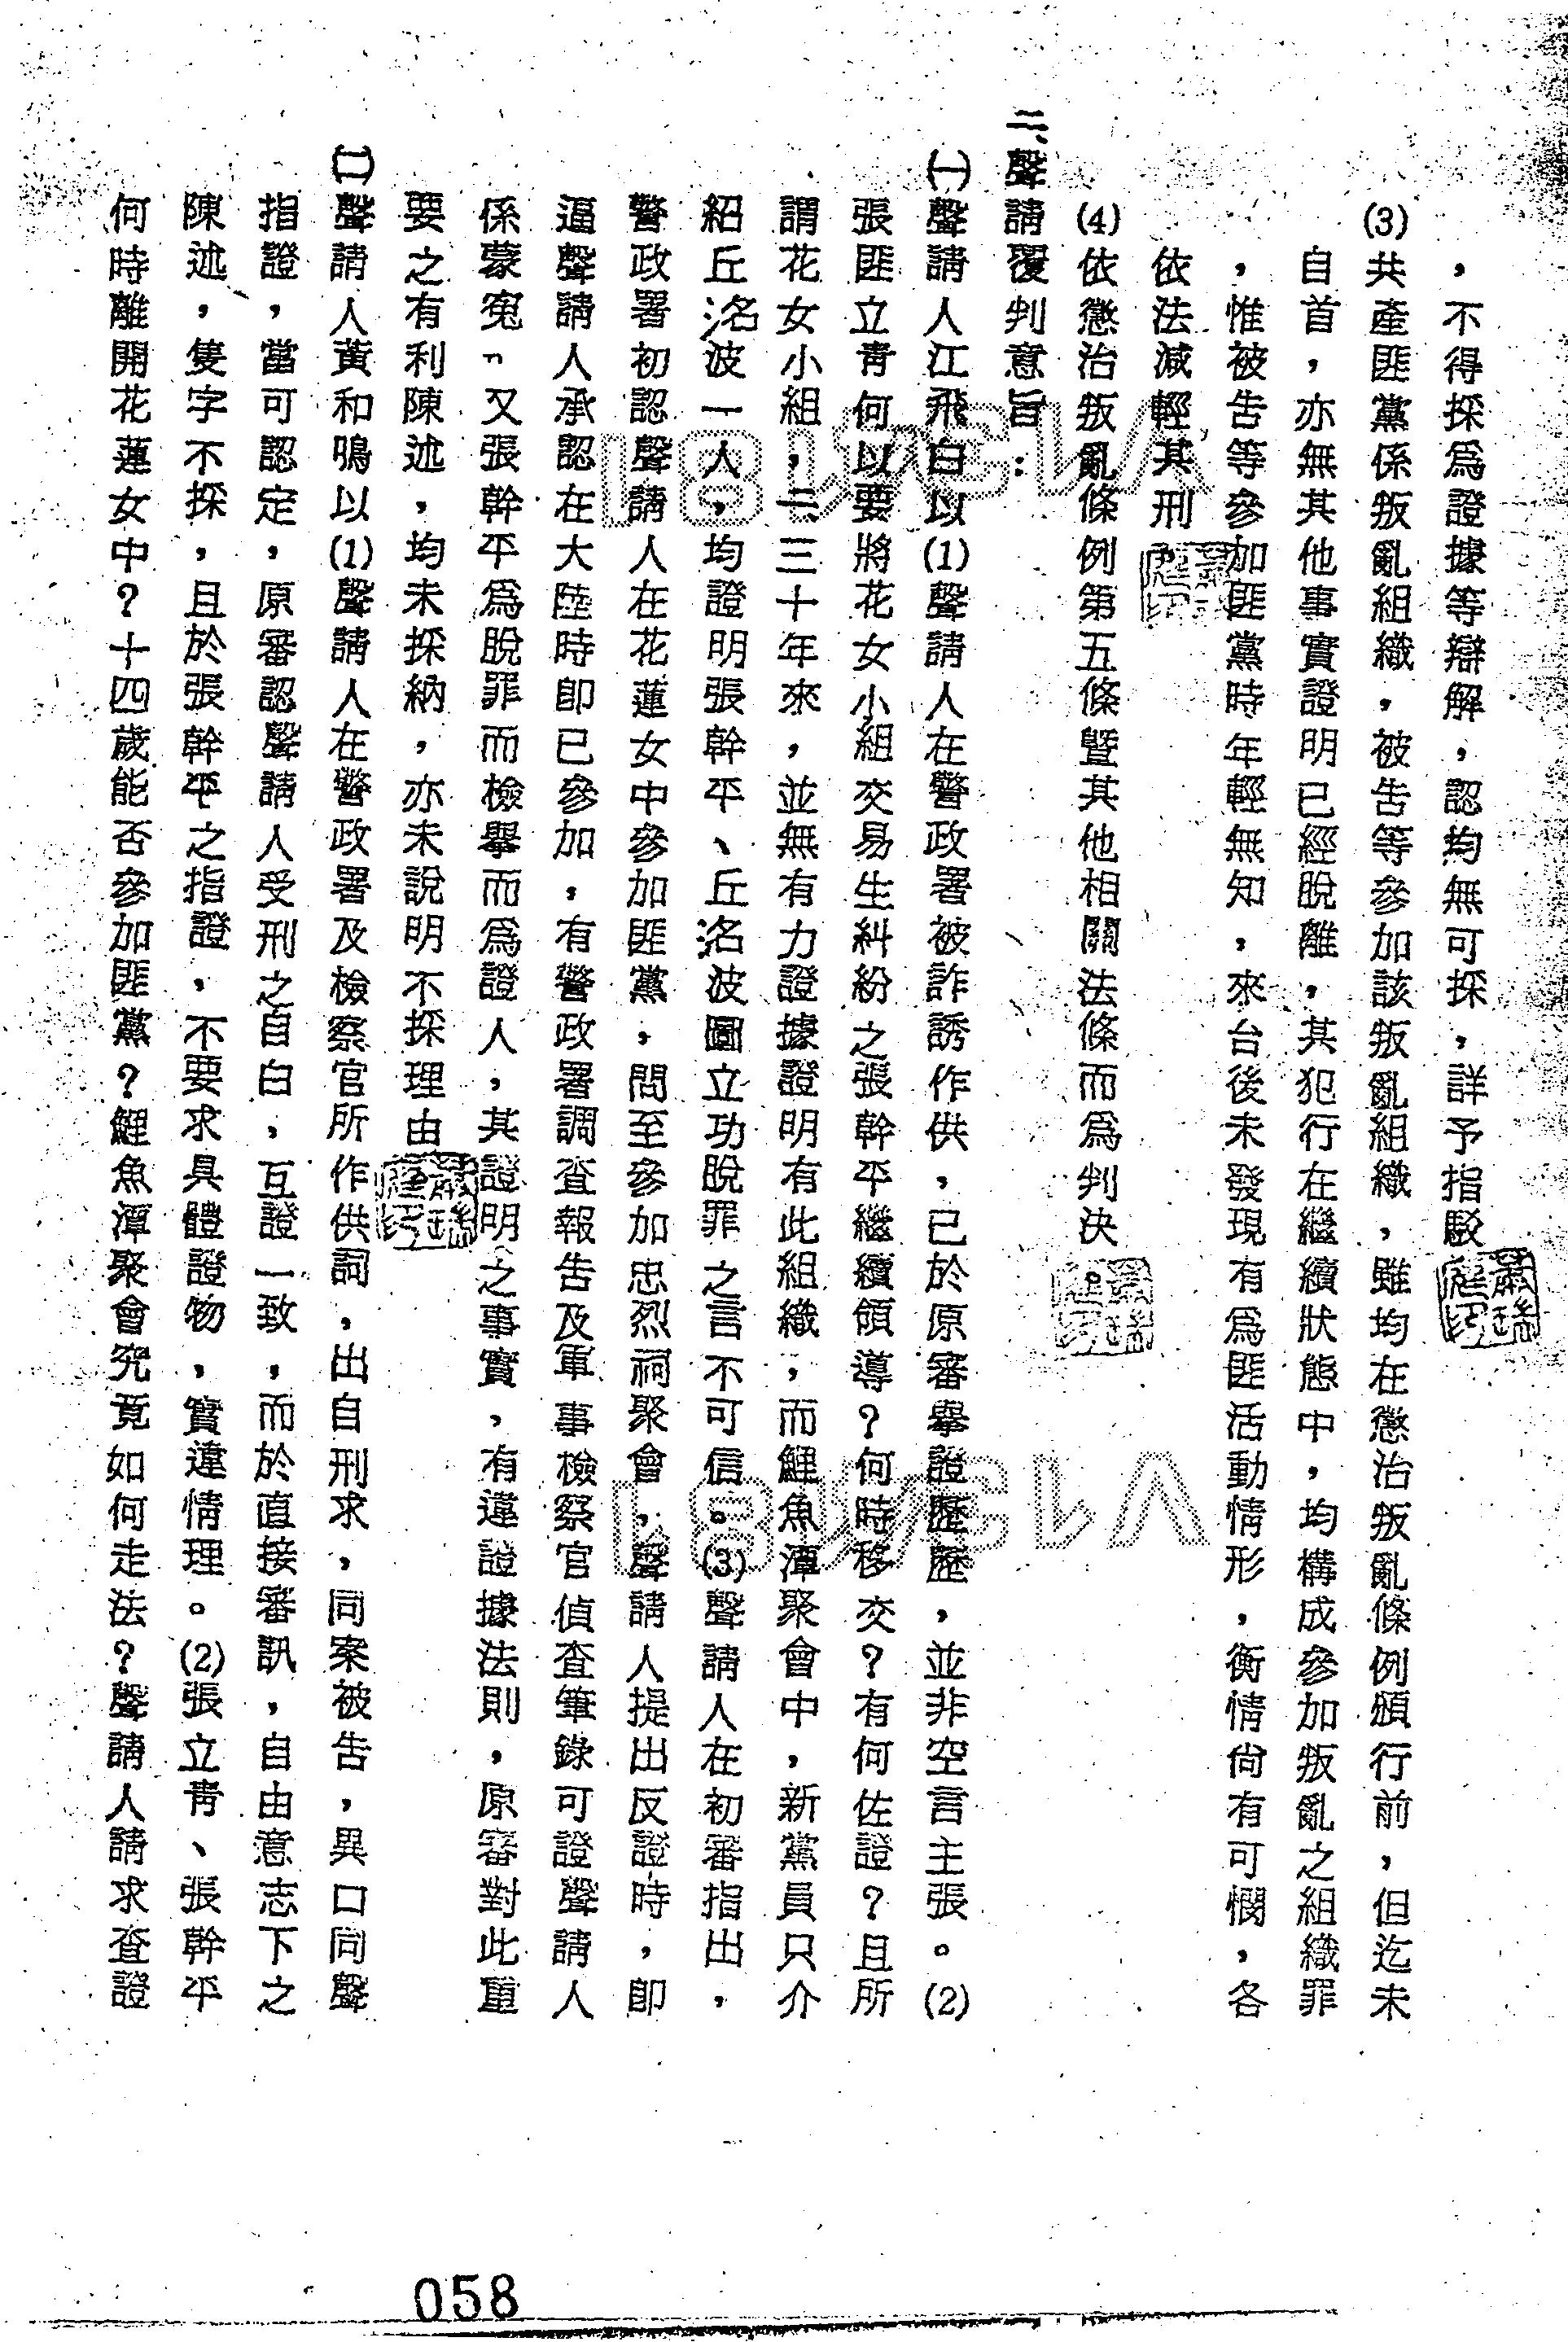 ，不得採爲證據等辯解，認均無可採，詳予指駁
(3)共產匪黨係叛亂組織，被告等參加該叛亂組織，雖均在懲治叛亂條例頒行前，但迄未
自首，亦無其他事實證明已經脫離，其犯行在繼續狀態中，均構成參加叛亂之組織罪
，惟被告等參加匪黨時年輕無知，來台後未發現有爲匪活動情形，衡情尚有可憫，各
依法減輕其刑
(4)依懲治叛亂條例第五條暨其他相關法條而爲判決。
二、聲請覆判意旨：
㈠聲請人江飛白以(1)聲請人在警政署被詐誘作供，已於原審舉證歷歷，並非空言主張。(2)
張匪立青何以要將花女小組交易生糾紛之張幹平繼續領導？何時移交？有何佐證？且所
謂花女小組，二三十年來，並無有力證據證明有此組織，而鯉魚潭聚會中，新黨員只介
紹丘洺波一人，均證明張幹平、丘洺波圖立功脫罪之言不可信。(3)聲請人在初審指出，
警政署初認聲請人在花蓮女中參加匪黨，問至參加忠烈祠聚會，聲請人提出反證時，即
逼聲請人承認在大陸時即已參加，有警政署調查報告及軍事檢察官偵查筆錄可證聲請人
係蒙寃。又張幹平爲脫罪而檢舉而爲證人，其證明之事實，有違證據法則，原審對此重
要之有利陳述，均未採納，亦未說明不採理由
㈡聲請人黃和鳴以(1)聲請人在警政署及檢察官所作供詞，出自刑求，同案被告，異口同聲
指證，當可認定，原審認聲請人受刑之自白，互證一致，而於直接審訊，自由意志下之
陳述，隻字不採，且於張幹平之指證，不要求具體證物，實違情理。(2)張立青、張幹平
何時離開花蓮女中？十四歲能否參加匪黨？鯉魚潭聚會究竟如何走法？聲請人請求查證
058